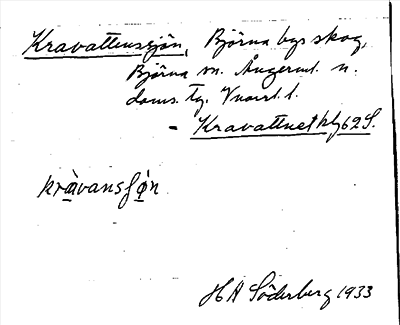 Kravattensjön, Björna bys skog,
Björna sn. Ångerml. n.
doms. tg. Vnorrl. l.
- Kravattnet kbl 62 S.
kràvansʃǫ̀n
H A Söderberg 1933